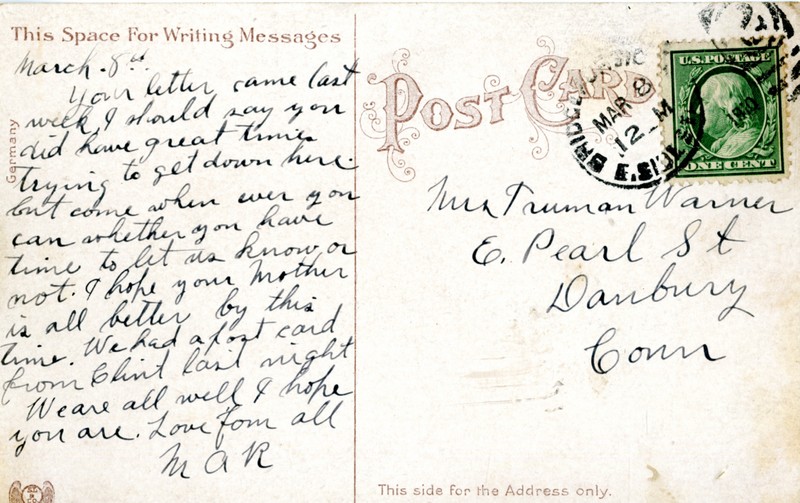 This Space For Writing Messages
March 8th.
Your letter came last
week I should say you
did have great times
trying to get down here.
but come when ever you
can whether you have
time to let us know or
not. I hope your Mother
is all better by this
time. We had a post card
from Clint last night
We are all well & hope
you are. Love fom all
M A R
Germany
POST CARD
BRIDGE
MAR 8
12 M
U.S. POSTAGE
ONE CENT
Mrs Truman Warner
E. Pearl St
Danbury
Conn
This side for the Address only.